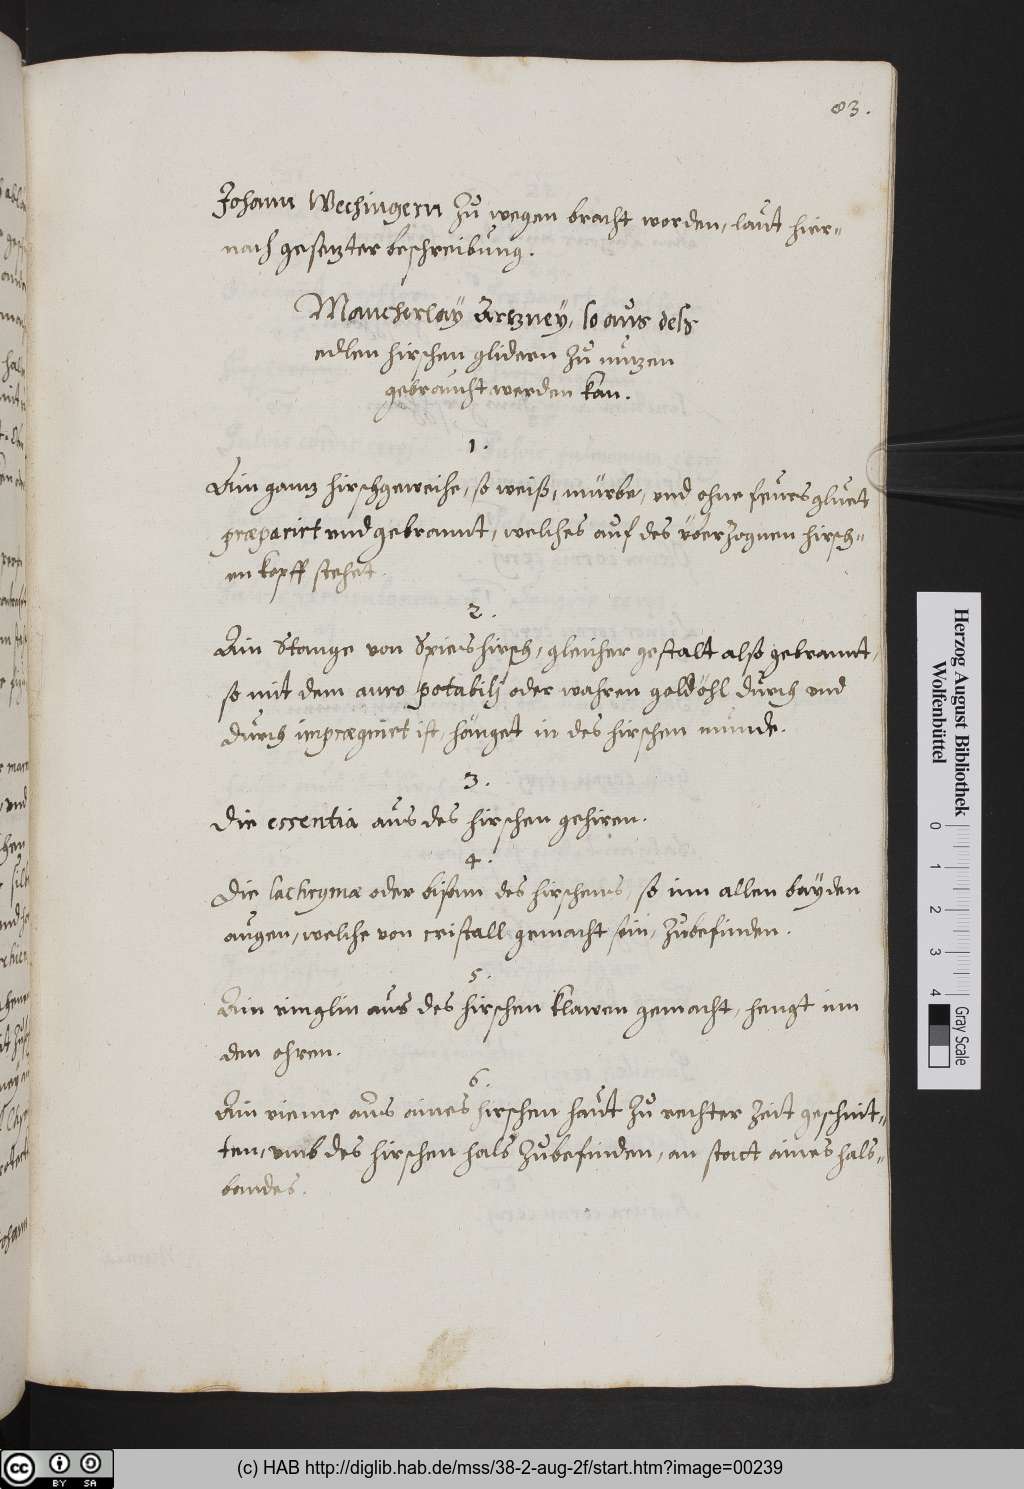 83.
Johann Wechingern zu wegen bracht worden, laut hier-
nach gesetzter beschreibung.
Mancherlaÿ Artzneÿ, so aus deß
edlen hirschen glidern zu nutzen
gebraucht werden kan.
1.
Ain gantz hirschgeweihe, so weiß, mürbe, und ohne feurs gluet
præparirt und gebrannt, welches auf des überzognen hirsch-
en kopff stehet.
2.
Ain Stange von Spieshirsch, gleicher gestalt also gebrannt,
so mit dem auro potabilj oder wahren goldöhl durch und
durch imprægnirt ist, hänget in des hirschen munde.
3.
Die essentia aus des hirschen gehiren.
4.
Die lachrymæ oder bisam des hirschens, so inn allen bayden
augen, welche von cristall gemacht sein, zubefinden.
5.
Ain ringlin aus des hirschen klawen gemacht, hengt inn
den ohren.
6.
Ain rieme aus aines hirschen haut zu rechter zeit geschnit-
ten, umb des hirschen hals zubefinden, an statt aines hals-
bandes.
Herzog August Bibliothek
Wolfenbüttel
0 1 2 3 4
Gray Scale
cc BY SA
(c) HAB http://diglib.hab.de/mss/38-2-aug-2f/start.htm?image=00239